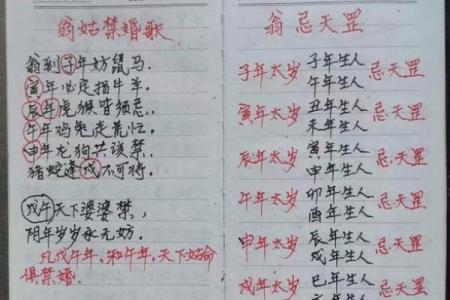 翁姑禁婚歌
翁到子年妨鼠马.
寅年必定损牛羊.
辰年虎猴皆须忌.
午年鸡兔走荒忙.
申年龙狗共该禁.
猪蛇逢戌不可将.
戊午天下婆婆禁,
阴年岁岁永无妨.
凡戊午年,和午年,天下姑命
俱禁婚.
翁忌天罡
子年太岁 子年生人 午年生人 忌天罡
寅年太岁 丑年生人 未年生人 忌天罡
辰年太岁 寅年生人 申年生人 忌天罡
午年太岁 卯年生人 酉年生人 忌天罡
申年太岁 辰年生人 戌年生人 忌天罡
戌年太岁 巳年生人 忌天罡